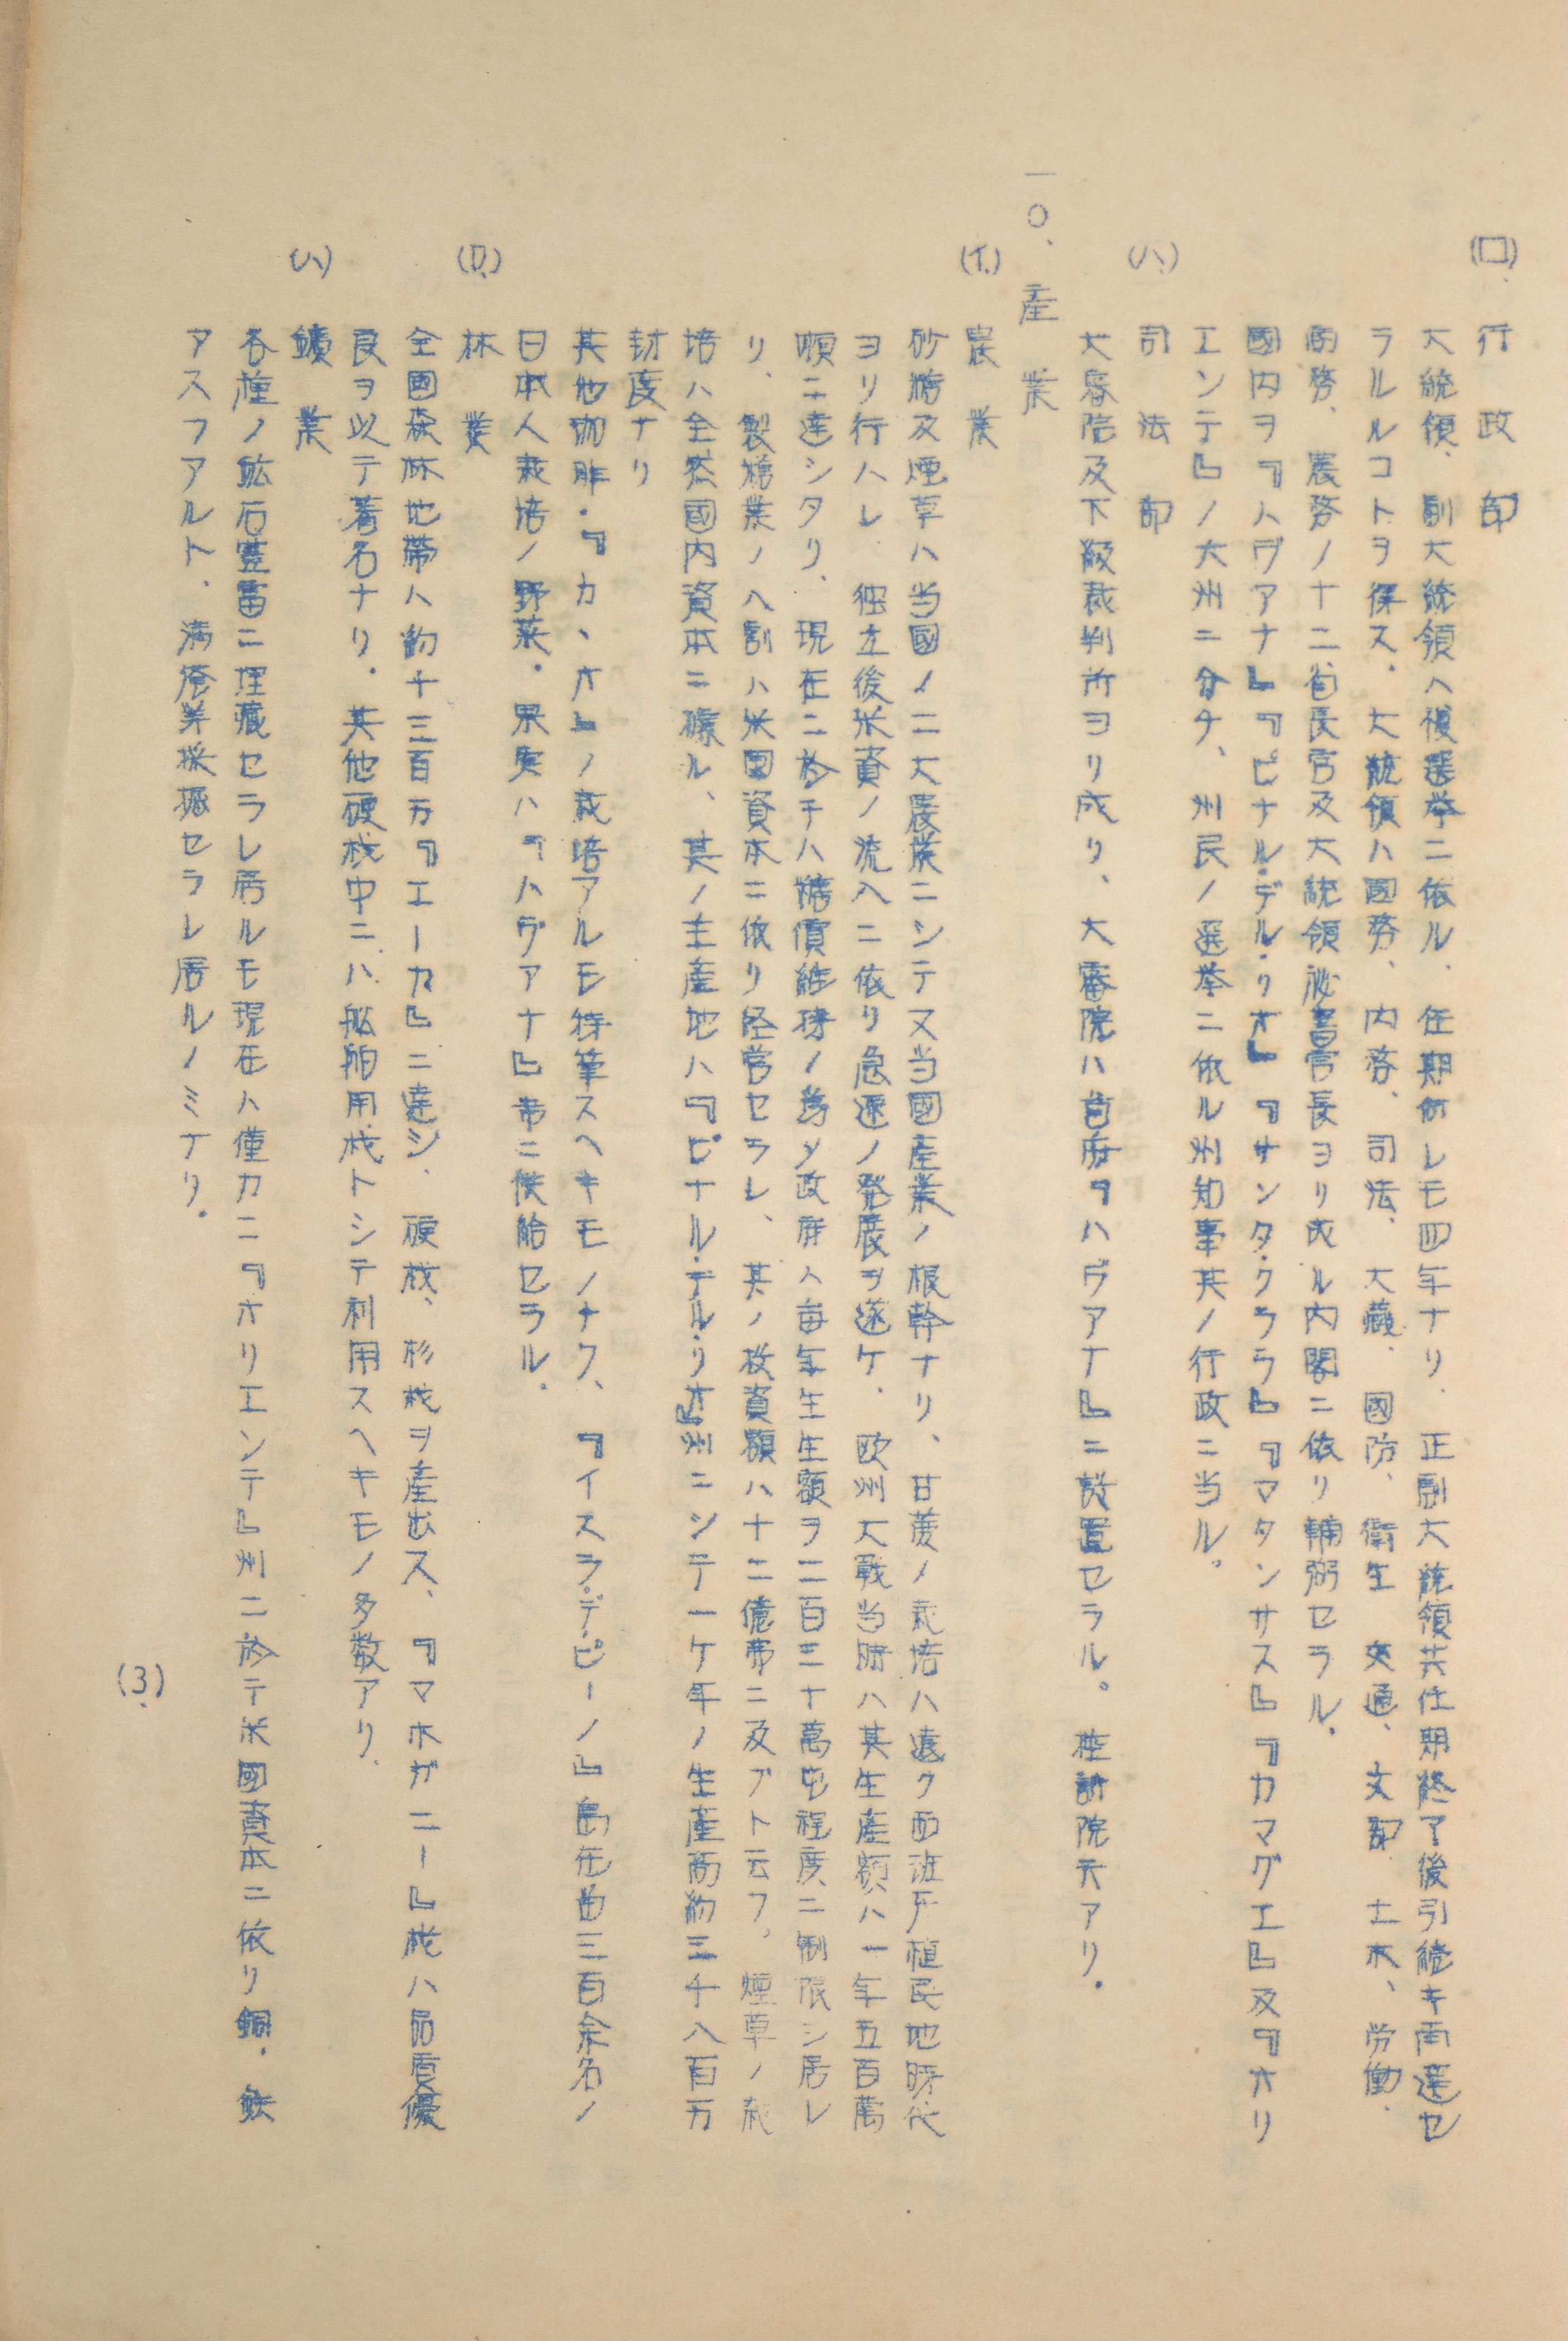 (ロ)、行政部
大統領、副大統領ハ複選挙ニ依ル、任期何レモ四年ナリ、正副大統領共任期終了後引続キ再選セ
ラルルコトヲ得ス。大統領ハ國務、内務、司法、大蔵、國防、衛生、交通、文部、土木、労働、
商務、農務ノ十二省長官及大統領祕書官長ヨリ成ル内閣ニ依リ輔弼セラル。
國内ヲ『ハヴアナ』『ピナル・デル・リオ』『サンタ・クララ』『マタンサス』『カマグエ』及『オリ
エンテ』ノ六州ニ分チ、州民ノ選挙ニ依ル州知事其ノ行政ニ当ル。
(ハ)、司法部
大審院及下級裁判所ヨリ成リ、大審院ハ首府『ハヴアナ』ニ設置セラル。控訴院六アリ。
一〇、産業
(イ)、農業
砂糖及煙草ハ当國ノ二大農業ニシテ又当國産業ノ根幹ナリ、甘蔗ノ栽培ハ遠ク西班牙植民地時代
ヨリ行ハレ、独立後米資ノ流入ニ依リ急速ノ発展ヲ遂ケ、欧州大戦当時ハ其生産額ハ一年五百萬
噸ニ達シタリ、現在ニ於テハ糖價維持ノ為メ政府ハ毎年生生額ヲ二百三十萬屯程度ニ制限シ居レ
リ、製糖業ノ八割ハ米国資本ニ依リ経営セラレ、其ノ投資額ハ十二億弗ニ及ブト云フ。煙草ノ栽
培ハ全然國内資本ニ據ル、其ノ主産地ハ『ピナル・デル・リオ』州ニシテ一ケ年ノ生産高約三千八百万
封度ナリ
其他珈琲・『カヽオ』ノ栽培アルモ特筆スヘキモノナク、『イスラ・デ・ピーノ』島在留三百余名ノ
日本人栽培ノ野菜・果実ハ『ハヴアナ』市ニ供給セラル。
(ロ)、林業
全國森林地帯ハ約十三百万『エーカ』ニ達シ、硬材、杉材ヲ産出ス、『マホガニー』材ハ品質優
良ヲ以テ著名ナリ。其他硬材中ニハ船舶用材トシテ利用スヘキモノ多数アリ、
(ハ)、鑛業
各種ノ鉱石豊富ニ埋藏セラレ居ルモ現在ハ僅カニ『オリエンテ』州ニ於テ米國資本ニ依リ銅・鉄
アスフアルト、満俺等採掘セラレ居ルノミナリ。
(3)